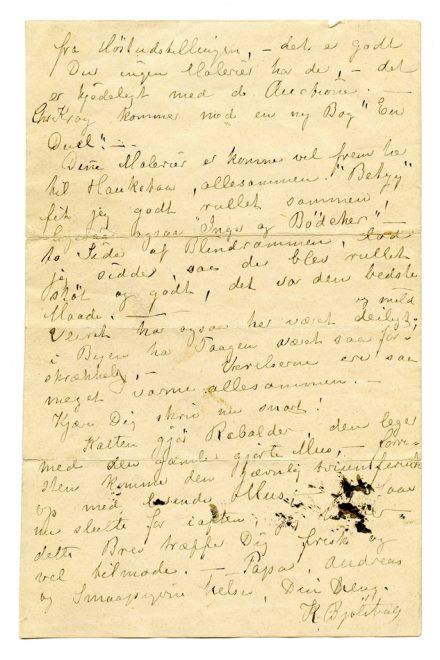 fra Høstudstillingen, – det er godt
Du ingen Malerier har de, – det
er kjedeligt med de Auctioner. –
Chr Krog kommer med en ny Bog "En
Duel". –
Dine Malerier er komne vel frem her
til Hauketo, allesammen. "Betzy"
fik jeg godt rullet sammen,
ogsaa "Inga og Bödcker" –
to Sider af Blindrammen, lod
jeg sidde, saa de blev rullet
godt, det var den bedste
Maade. –
Veiret har ogsaa her været deiligt, og mild
i Byen har Taagen været saa for-
skrækkelig, – Værelserne ere saa
meget varme allesammen. –
Kjære Dig skriv nu snart!
Katten gjør Rabalder, den leger
med den gamle gjorte Mus, – forre-
sten kommer den jævnlig
op med levende Mus
nu slutte for iaften,
dette Brev træffe Dig frisk og
vel tilmode. – Papa, Andreas
og hilser, Din Deng.
K Bjølstad